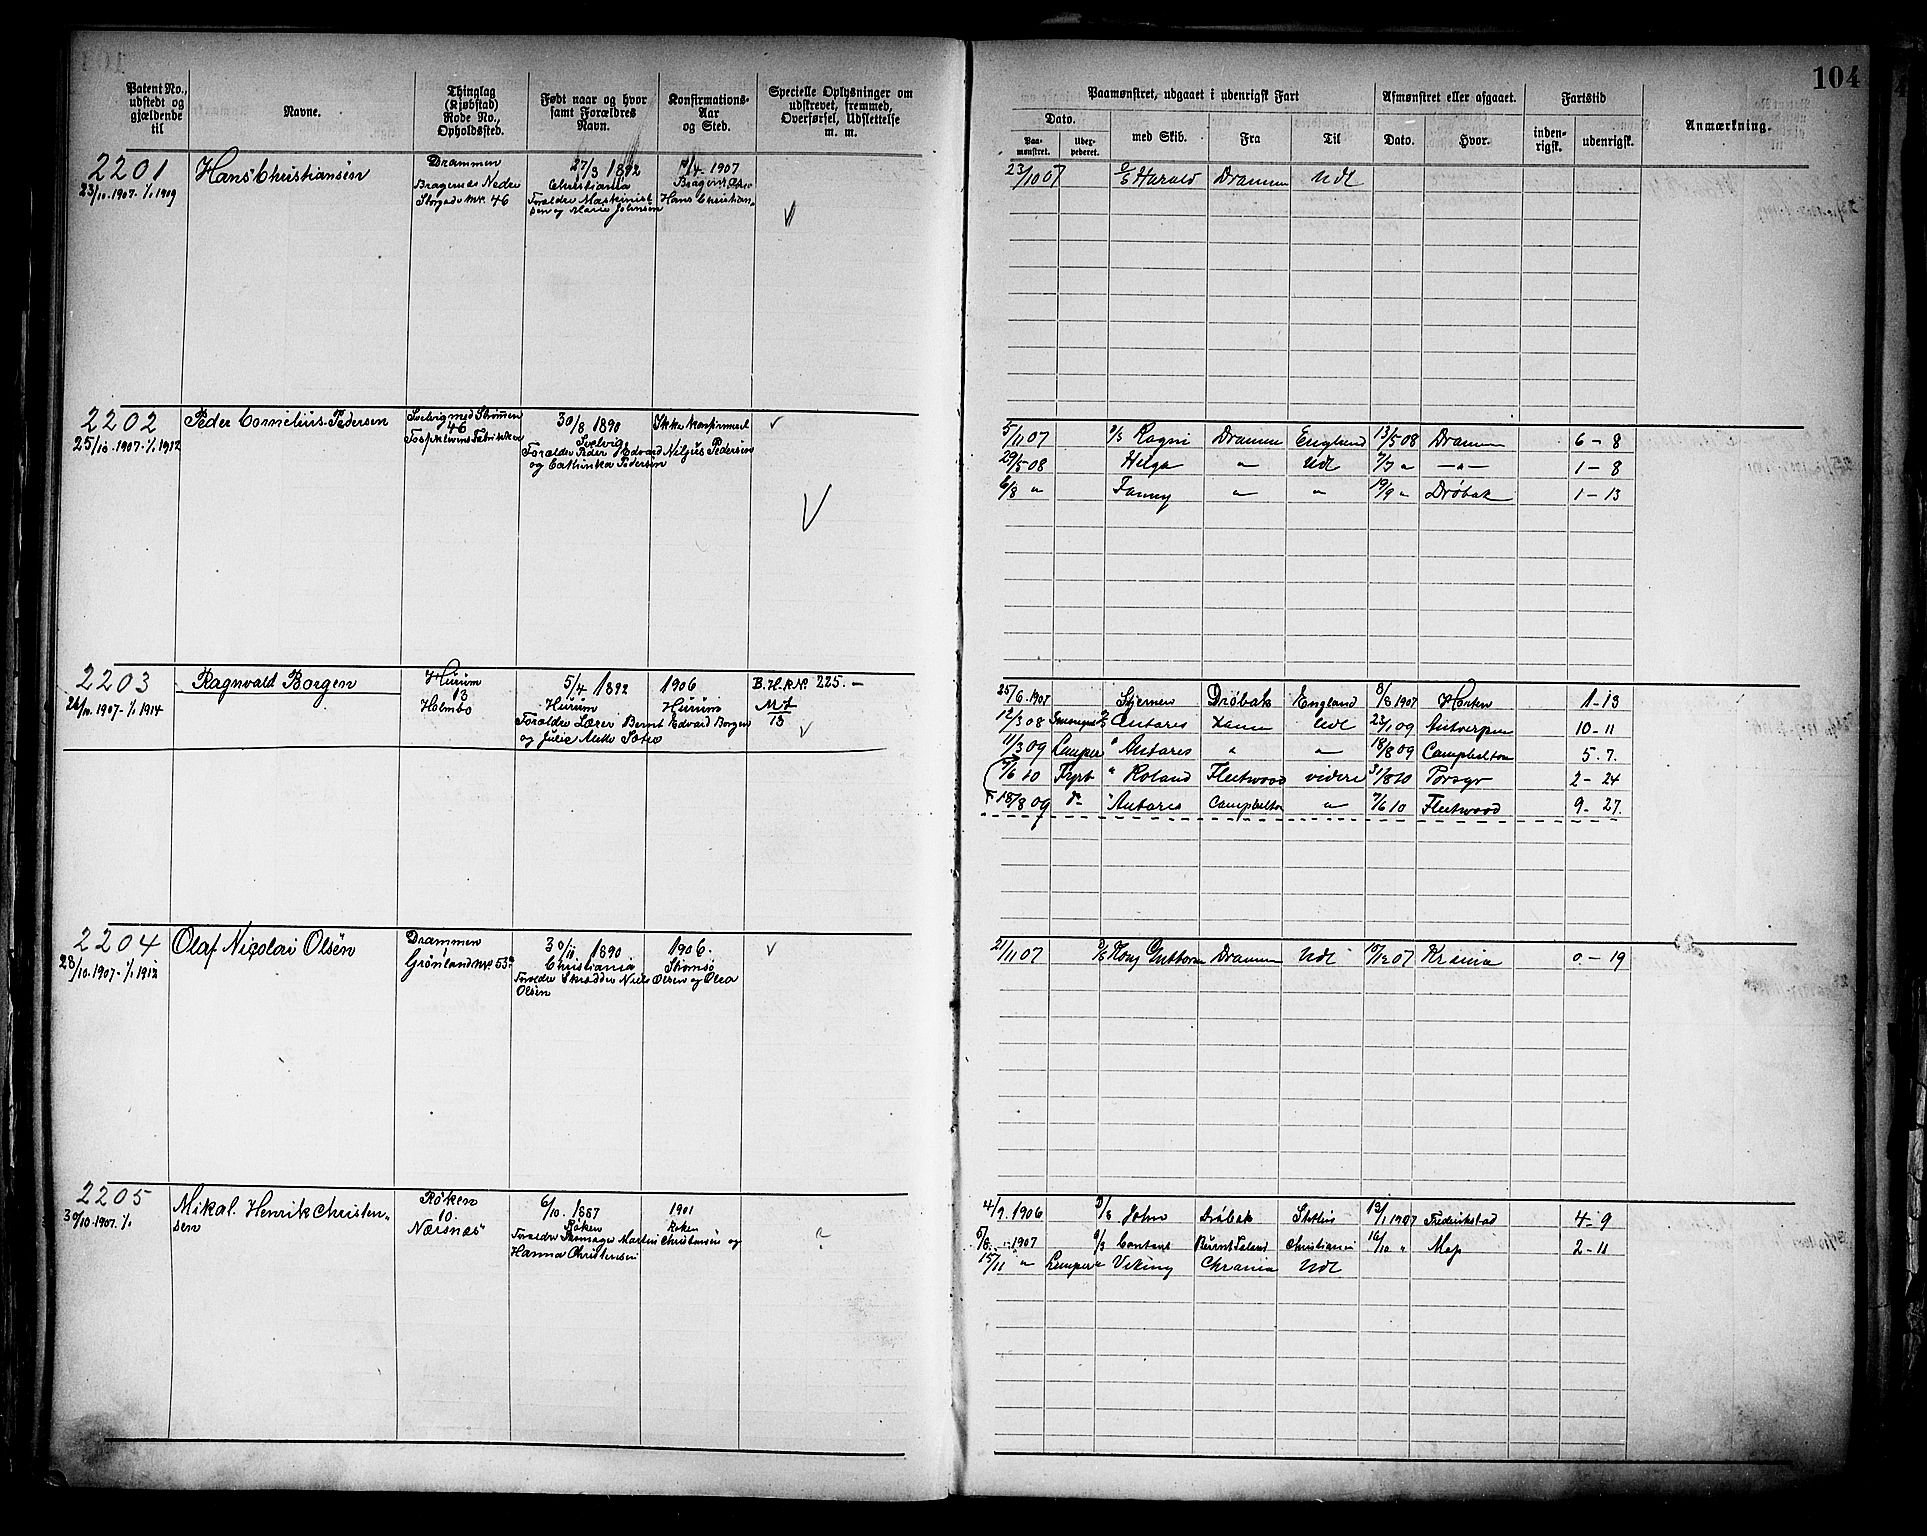 104
Patent No., udstedt og gjældende til
Navne.
Thinglag (Kjøbstad) Rode No., Opholdssted.
Født naar og hvor samt Forældres Navn.
Konfirmations-Aar og Sted.
Specielle Oplysninger om udskrevet, fremmed, Overførsel, Udslettelse m. m.
Paamønstret, udgaaet i udenrigsk Fart
Afmønstret eller afgaaet.
Fartstid
Anmærkning.
Dato.
Paa-mønstret.
med Skib.
Fra
Til
Dato.
Hvor.
inden-rigsk.
udenrigsk.
2201
23/10.1907-1/1 1909
Hans Christiansen
Drammen
Bragernes Nedre
Storgade nr. 46
27/3 1892
Christiania
Forældre Maskinist Hans Christian-
sen og Marie Johnsen
1907
23/10 07 Harald Drammen Udl
2202
25/10.1907-1/1 1912
Peder Cornelius Pedersen
Svelvig med Strømmen
46
30/8 1890
Svelvig
Forældre Peder Edvard Nilsius Pedersen
og Cathinka Pedersen
Ikke konfirmeret
5/11 07 Ragni Drammen England 13/5 08 Drammen 6 - 8
29/5 08 Helga " Udl 7/7 " - " - 1 - 8
6/8 " Fanny " " 19/9 " Drøbak 1 - 13
2203
26/10.1907-1/1 1914
Ragnvald Borgen
Hurum
13
Holmbo
5/4 1892
Hurum
Forældre Lærer Bernt Edvard Borgen
og Julie
1906
Hurum
B.H.R.N. 225.-
25/6.1907 Stjernen Drøbak England 8/8 1907 Horten 1 - 13
12/3 08 Antares Udl 23/1 09 Antwerpen 10 - 11
11/3 09 Lemper " Antares " " 18/8 09 Campbelton 5. 7.
7/6 10 Fyrb " Roland Fleetwood videre 31/8 10 Porsgr 2 - 24
18/8 09 " Antares Campbelton " 7/6 10 Fleetwood 9 - 27.
2204
28/10.1907-1/1 1912
Olaf Nicolai Olsen
Drammen
Grønland nr. 53
30/11 1890
Christiania
Forældre Skrædder Niels Olsen og Olea
Olsen
1906.
Strømsø
21/11 07 Kong Guttorm Drammen Udl 10/12 07 Krania 0 - 19
2205
30/10.1907.1/1
Mikal. Henrik Christen-
sen
Røken
10.
Nærsnes
6/10. 1887
Røken
Forældre Martin Christensen og
Hanna Christensen
1901
Røken
4/9.1906 John Drøbak Stettin 13/1 1907 Fredrikstad 4 - 9
1907 Burnt Island Christiania 16/10 " Moss 2 - 11
15/11 " Lemper " Viking Chrania Udl